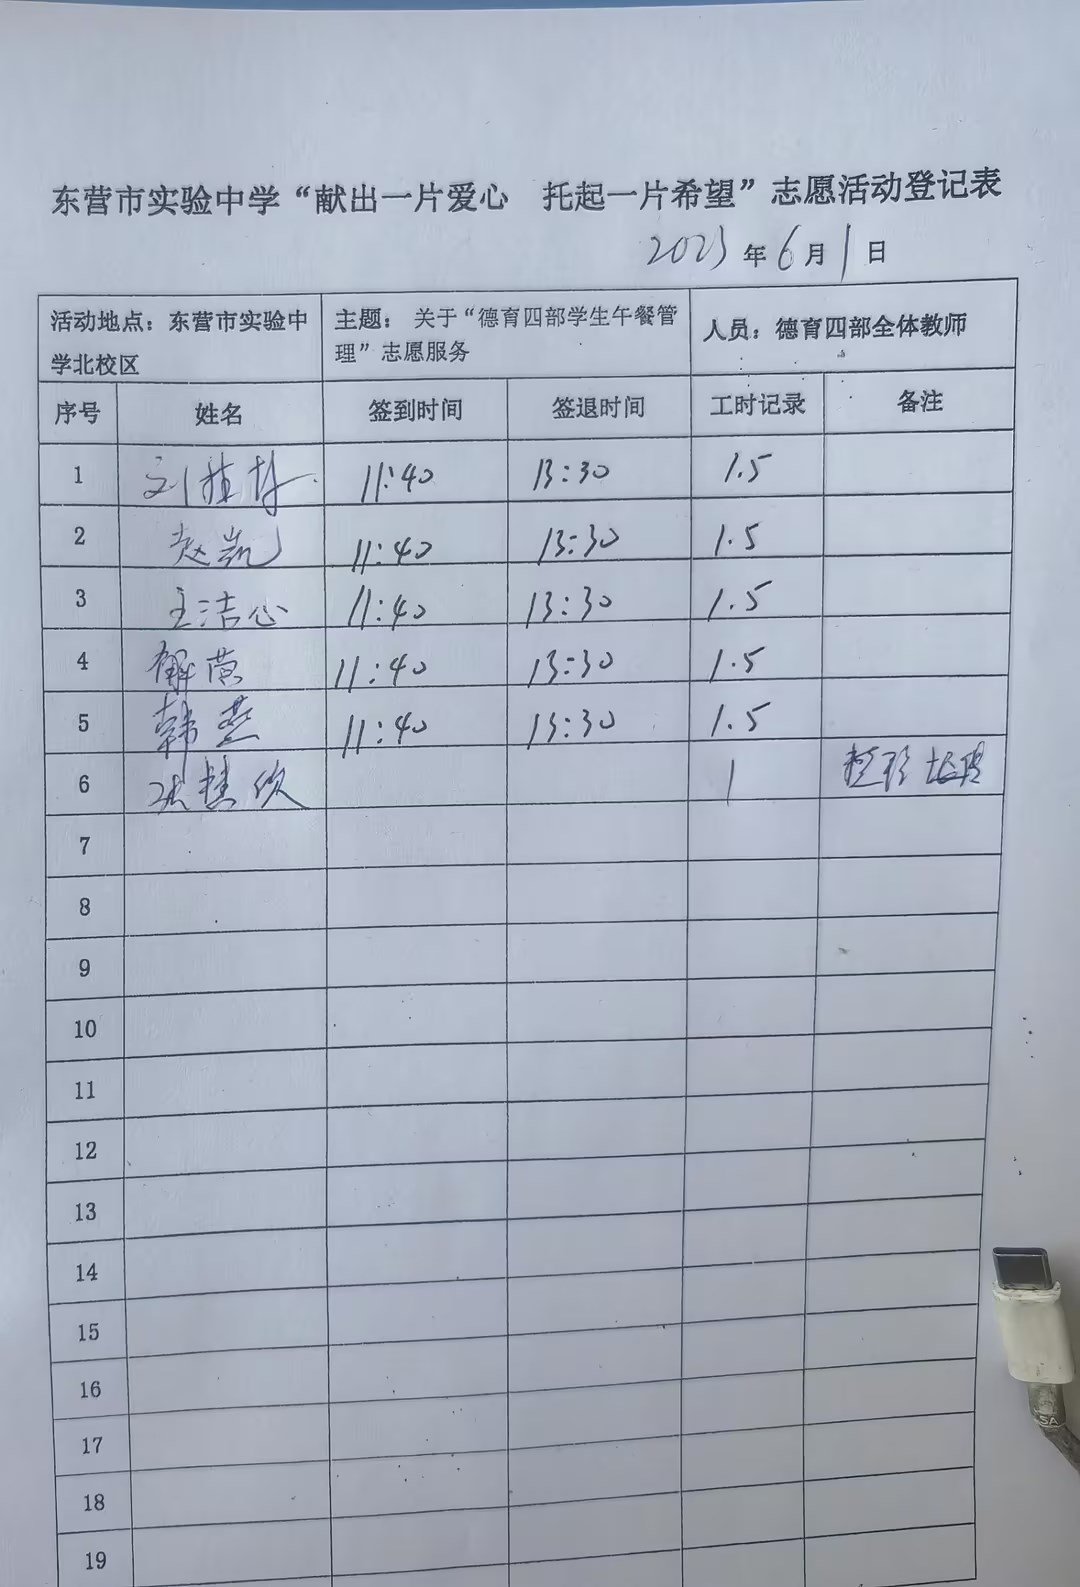 东营市实验中学“献出一片爱心 托起一片希望”志愿活动登记表
2023年6月1日
活动地点：东营市实验中学北校区 主题：关于“德育四部学生午餐管理”志愿服务 人员：德育四部全体教师
序号 姓名 签到时间 签退时间 工时记录 备注
1 刘 11:40 13:30 1.5
2 赵凯 11:40 13:30 1.5
3 王洁心 11:40 13:30 1.5
4 解 11:40 13:30 1.5
5 韩燕 11:40 13:30 1.5
6 1
7
8
9
10
11
12
13
14
15
16
17
18
19
SA